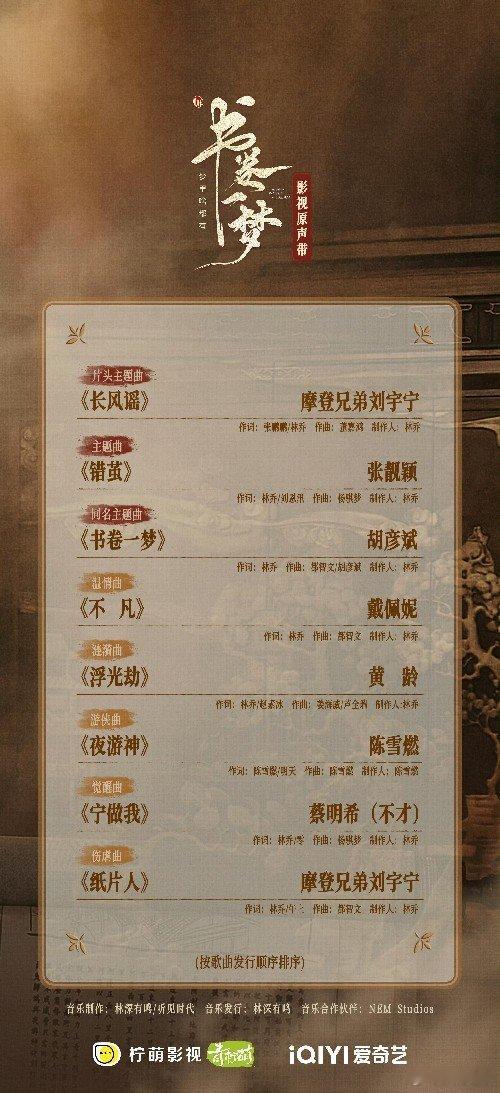 书卷一梦
影视原声带
片头主题曲
《长风谣》 摩登兄弟刘宇宁
作词：张鹏鹏/林乔 作曲：董嘉鸿 制作人：林乔
主题曲
《错茧》 张靓颖
作词：林乔/刘恩汛 作曲：杨骐梦 制作人：林乔
同名主题曲
《书卷一梦》 胡彦斌
作词：林乔 作曲：邵智文/胡彦斌 制作人：林乔
温情曲
《不 凡》 戴佩妮
作词：林乔 作曲：邵智文 制作人：林乔
涟漪曲
《浮光劫》 黄 龄
作词：林乔/赵素冰 作曲：姜海威 制作人:林乔
游侠曲
《夜游神》 陈雪燃
作词：陈雪燃/明天 作曲：陈雪燃 制作人：陈雪燃
觉醒曲
《宁做我》 蔡明希（不才）
作词：林乔 作曲：杨骐梦 制作人：林乔
伤虐曲
《纸片人》 摩登兄弟刘宇宁
作词：林乔 作曲：邵智文 制作人：林乔
(按歌曲发行顺序排序)
音乐制作：林深有鸣/听见时代 音乐发行：林深有鸣 音乐合作伙伴：NEM Studios
柠萌影视 iQIYI 爱奇艺